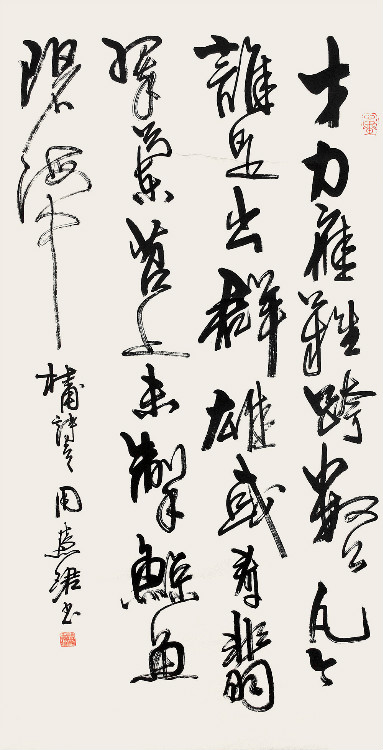 才力應難跨數公凡今
誰是出群雄或看翡
翠蘭苕上未掣鯨魚
碧海中
杜甫詩 周慧珺書